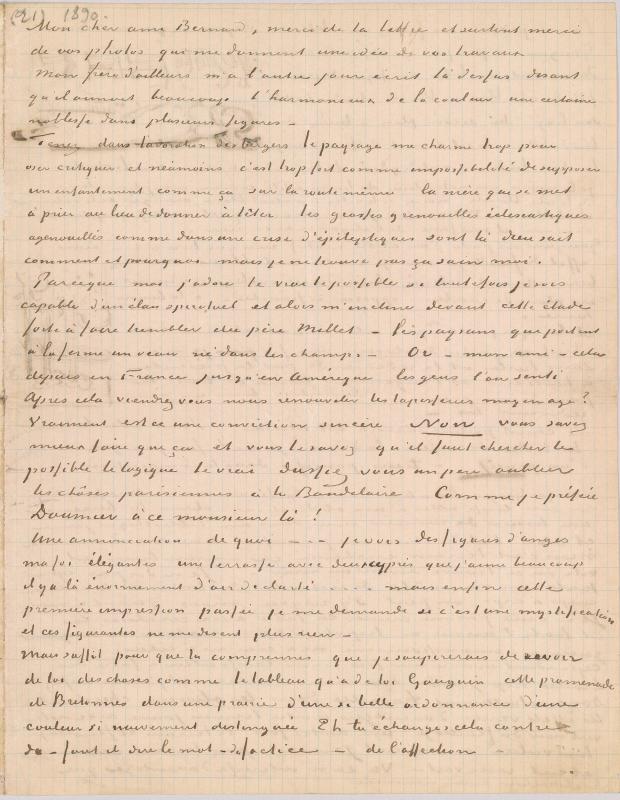 (21) 1890.
Mon cher ami Bernard, merci de ta lettre et surtout merci
de vos photos qui me donnent une idée de vos travaux
Mon frère d'ailleurs m'a l'autre jour écrit là dessus disant
qu'il aimait beaucoup l'harmonieux de la couleur une certaine
noblesse dans plusieurs figures –
Tenez dans l'adoration des bergers le paysage me charme trop pour
oser critiquer et néamoins c'est trop fort comme impossibilité de supposer
un enfantement comme ça sur la route même la mère qui se met
à prier au lieu de donner à têter les grosses grenouilles éclesiastiques
agenouillés comme dans une crise d'épileptiques sont là dieu sait
comment et pourquoi mais je ne trouve pas ça sain moi.
Parceque moi j'adore le vrai le possible si toutefois je sois
capable d'un élan spirituel et alors m'incline devant cette étude
forte à faire trembler du père Millet – les paysans qui portent
à la ferme un veau né dans les champs – Or – mon ami – cela
depuis en France jusqu'en Amérique les gens l'ont senti
Après cela viendrez vous nous renouveler les tapisseries moyen age?
Vraiment est ce une conviction sincère Non vous savez
mieux faire que ça et vous le savez qu'il faut chercher le
possible le logique le vrai dussiez vous un peu oublier
les choses parisiennes à la Baudelaire Comme je préfère
Daumier à ce monsieur là!
Une annonciation de quoi – – – je vois des figures d'anges
ma foi élégantes une terrasse avec deux cyprès que j'aime beaucoup
il y a là énormement d'air de clarté .... mais enfin cette
première impression passée je me demande si c'est une mystification
et ces figurantes ne me disent plus rien –
Mais suffit pour que tu comprennes que je soupirerais de revoir
de toi des choses comme le tableau qu'a de toi Gauguin cette promenade
de Bretonnes dans une prairie d'une si belle ordonnance d'une
couleur si naivement distinguée Eh tu échanges cela contre
du – faut il dire le mot – du factice – de l'affection –